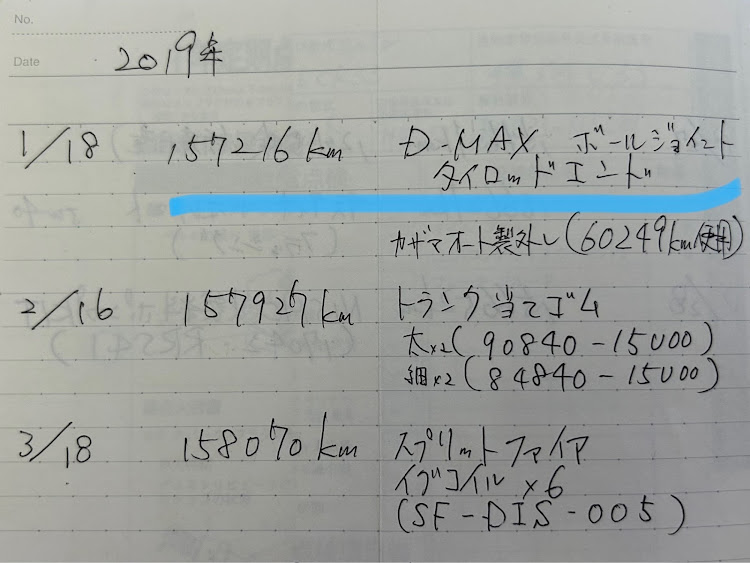 No.
Date
2019年
1/18 157216km D-MAX ボールジョイント
タイロッドエンド
カザマオート製外し(60249km使用)
2/16 157927km トランク当てゴム
太×2(90840-15U00)
細×2(84840-15U00)
3/18 158070km スプリットファイア
イグコイル×6
(SF-DIS-005)